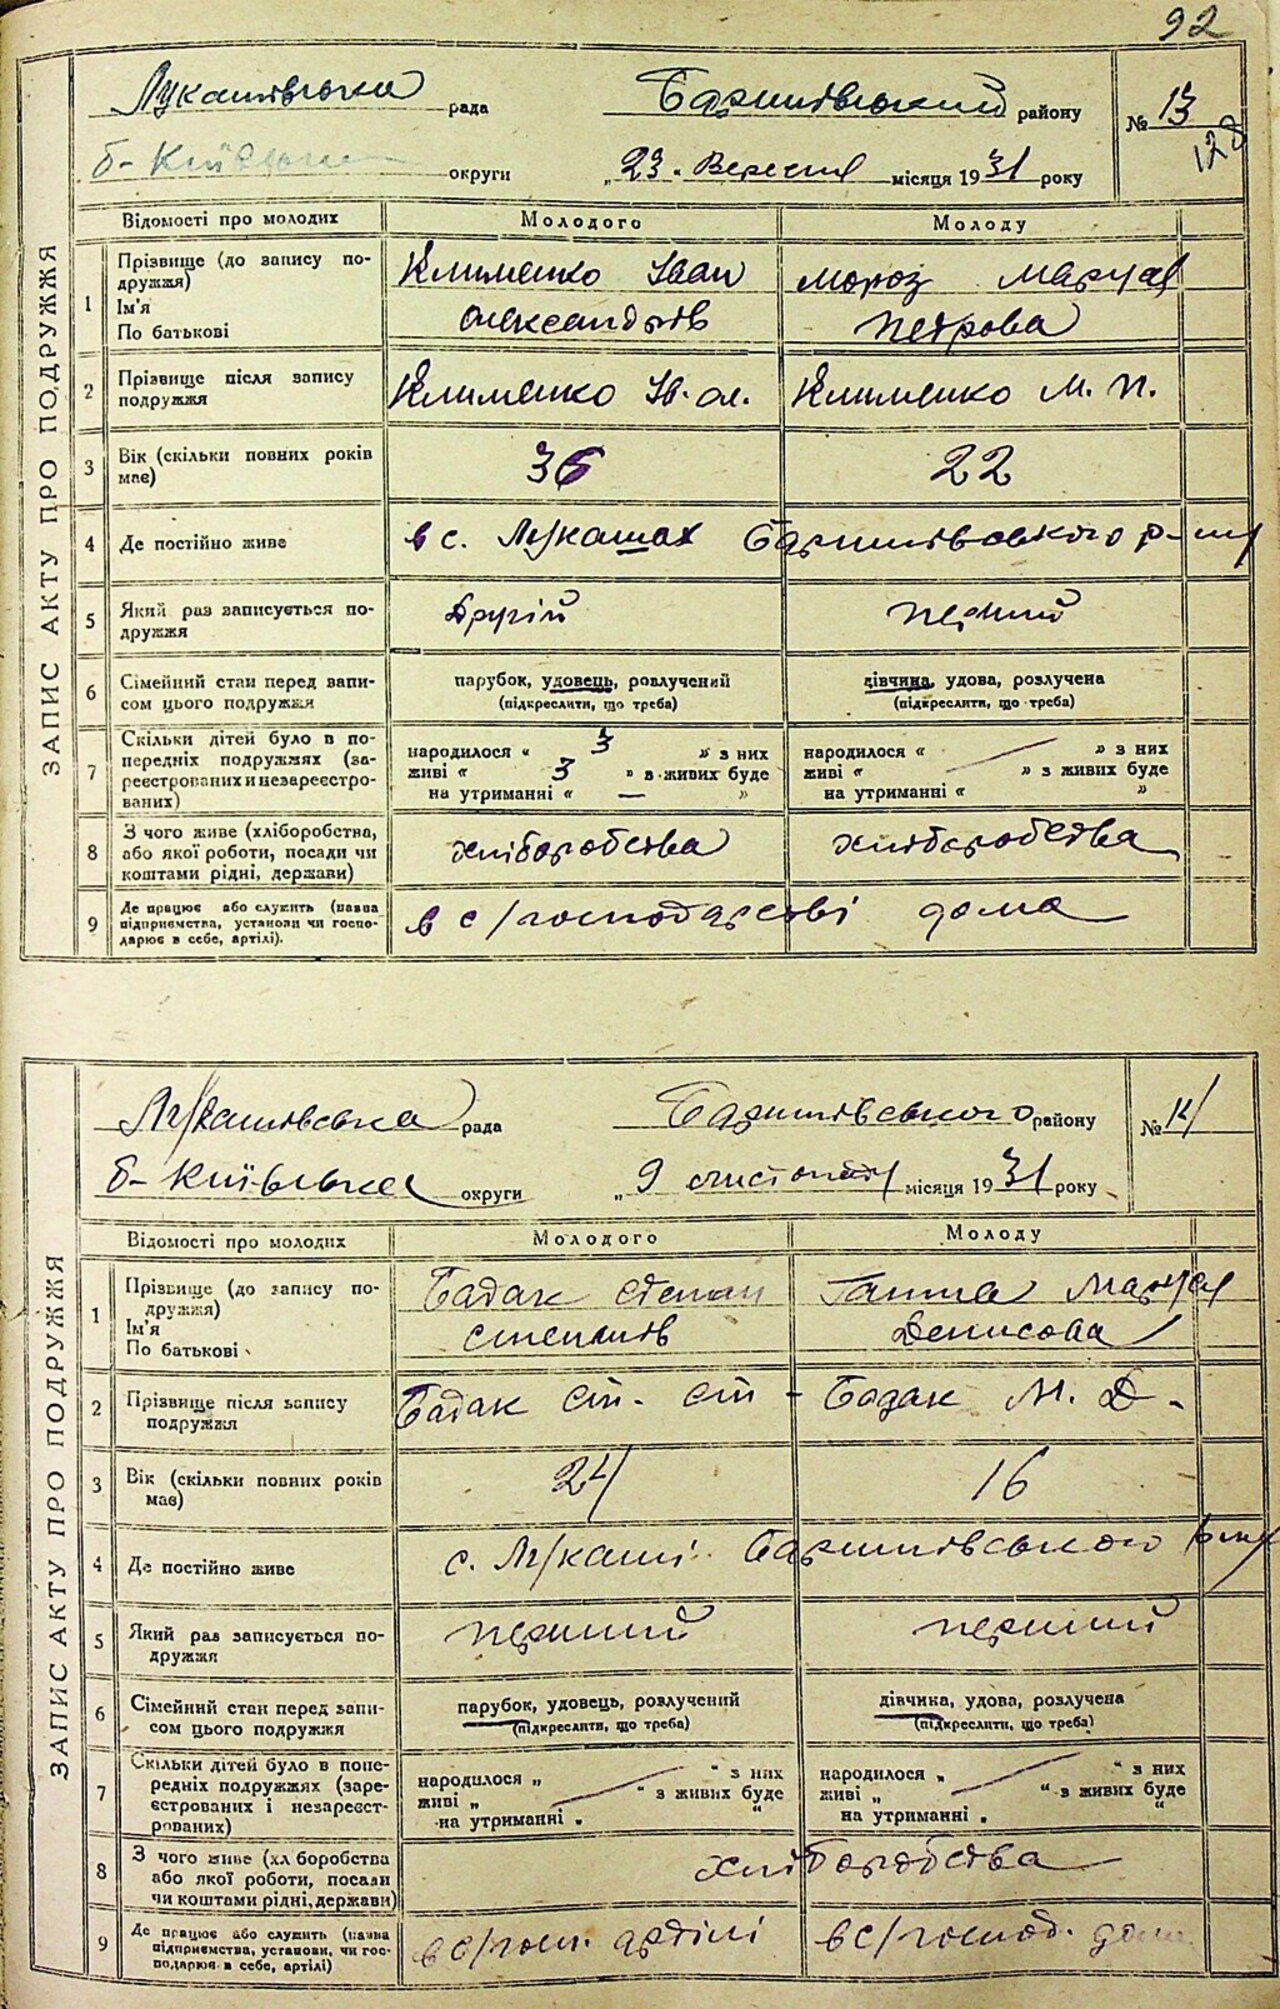 92
Лукашівська рада Баришівський району № 13
128
б- Київська округи „23„ Вересня місяця 1931 року
ЗАПИС АКТУ ПРО ПОДРУЖЖЯ
Відомості про молодих Молодого Молоду
1 Прізвище (до запису по-
дружжя)
Ім'я
По батькові
Клименко Іван
Олександрів
Мороз Маруся
Петрова
2 Прізвище після запису
подружжя
Клименко Ів. Ол. Клименко М. П.
3 Вік (скільки повних років
має)
36 22
4 Де постійно живе в с. Лукашах Баришівського р-ну
5 Який раз записується по-
дружжя
Другій перший
6 Сімейний стан перед запи-
сом цього подружжя
парубок, удовець, розлучений
(підкреслити, що треба)
дівчина, удова, розлучена
(підкреслити, що треба)
7 Скільки дітей було в по-
передніх подружжях (за-
реєстрованих и незареєстро-
ваних)
народилося « 3 » з них
живі « 3 » з живих буде
на утриманні « — »
народилося « » з них
живі « » з живих буде
на утриманні « »
8 З чого живе (хліборобства,
або якої роботи, посади чи
коштами рідні, держави)
хліборобства хліборобства
9 Де працює або служить (назва
підприємства, установи чи госпо-
дарює в себе, артілі).
в с/господарстві дома
Лукашівська рада Баришівського району № 14
б- Київська округи „ 9 листопаду місяця 1931 року
ЗАПИС АКТУ ПРО ПОДРУЖЖЯ
Відомості про молодих Молодого Молоду
1 Прізвище (до запису по-
дружжя)
Ім'я
По батькові
Бадак Степан
Степанів
Ганша Маруся
Денисова
2 Прізвище після запису
подружжя
Бадак Ст. Ст - Бадак М. Д -
3 Вік (скільки повних років
має)
24 16
4 Де постійно живе с. Лукаші Баришівського р-ну
5 Який раз записується по-
дружжя
перший перший
6 Сімейний стан перед запи-
сом цього подружжя
парубок, удовець, розлучений
(підкреслити, що треба)
дівчина, удова, розлучена
(підкреслити, що треба)
7 Скільки дітей було в попе-
редніх подружжях (заре-
єстрованих і незареєст-
рованих)
народилося „ “ з них
живі „ “ з живих буде
на утриманні „ “
народилося „ “ з них
живі „ “ з живих буде
на утриманні „ “
8 З чого живе (хліборобства
або якої роботи, посади
чи коштами рідні, держави)
хліборобства
9 Де працює або служить (назва
підприємства, установи, чи гос-
подарює в себе, артілі)
в с/госп. артілі в с/господ. дома